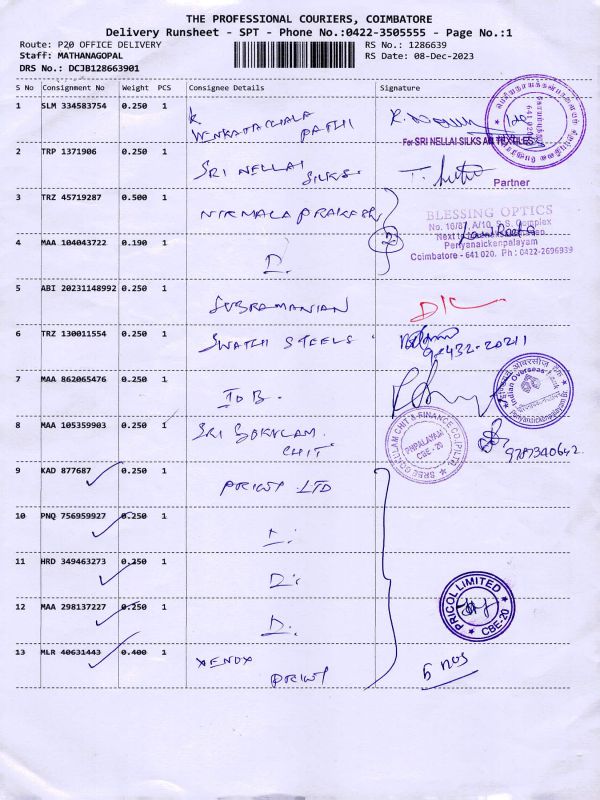 THE PROFESSIONAL COURIERS, COIMBATORE
Delivery Runsheet - SPT - Phone No.:0422-3505555 - Page No.:1
Route: P20 OFFICE DELIVERY
RS No.: 1286639
Staff: MATHANAGOPAL
RS Date: 08-Dec-2023
DRS No.: DCJB128663901
S No Consignment No Weight PCS Consignee Details Signature
1 SLM 334583754 0.250 1 K
VENKATACHALA
PATHI
2 TRP 1371906 0.250 1 SRI NELLAI
SILKS
For SRI NELLAI SILKS AND TEXTILES
Partner
3 TRZ 45719287 0.500 1 NIRMALA PRAKASH
BLESSING OPTICS
Complex
Periyanaickenpalayam
Coimbatore - 641 020. Ph : 0422-2696939
4 MAA 104043722 0.190 1 D.
2
5 ABI 20231148992 0.250 1 SUBRAMANIAN
6 TRZ 130011554 0.250 1 SWATHI STEELS
7 MAA 862065476 0.250 1 IOB.
Indian Overseas Bank
Periyanaickenpalayam Br.
8 MAA 105359903 0.250 1 SRI GOKULAM
CHIT
SREE GOKULAM CHIT & FINANCE CO.(P)LTD.
PNPALAYAM
CBE - 20
9 KAD 877687 0.250 1 PRICOL LTD
10 PNQ 756959927 0.250 1
11 HRD 349463273 0.250 1 D.
12 MAA 298137227 0.250 1 D.
PRICOL LIMITED
CBE-20
13 MLR 40631443 0.400 1 XENOX
PRICOL
5 nos